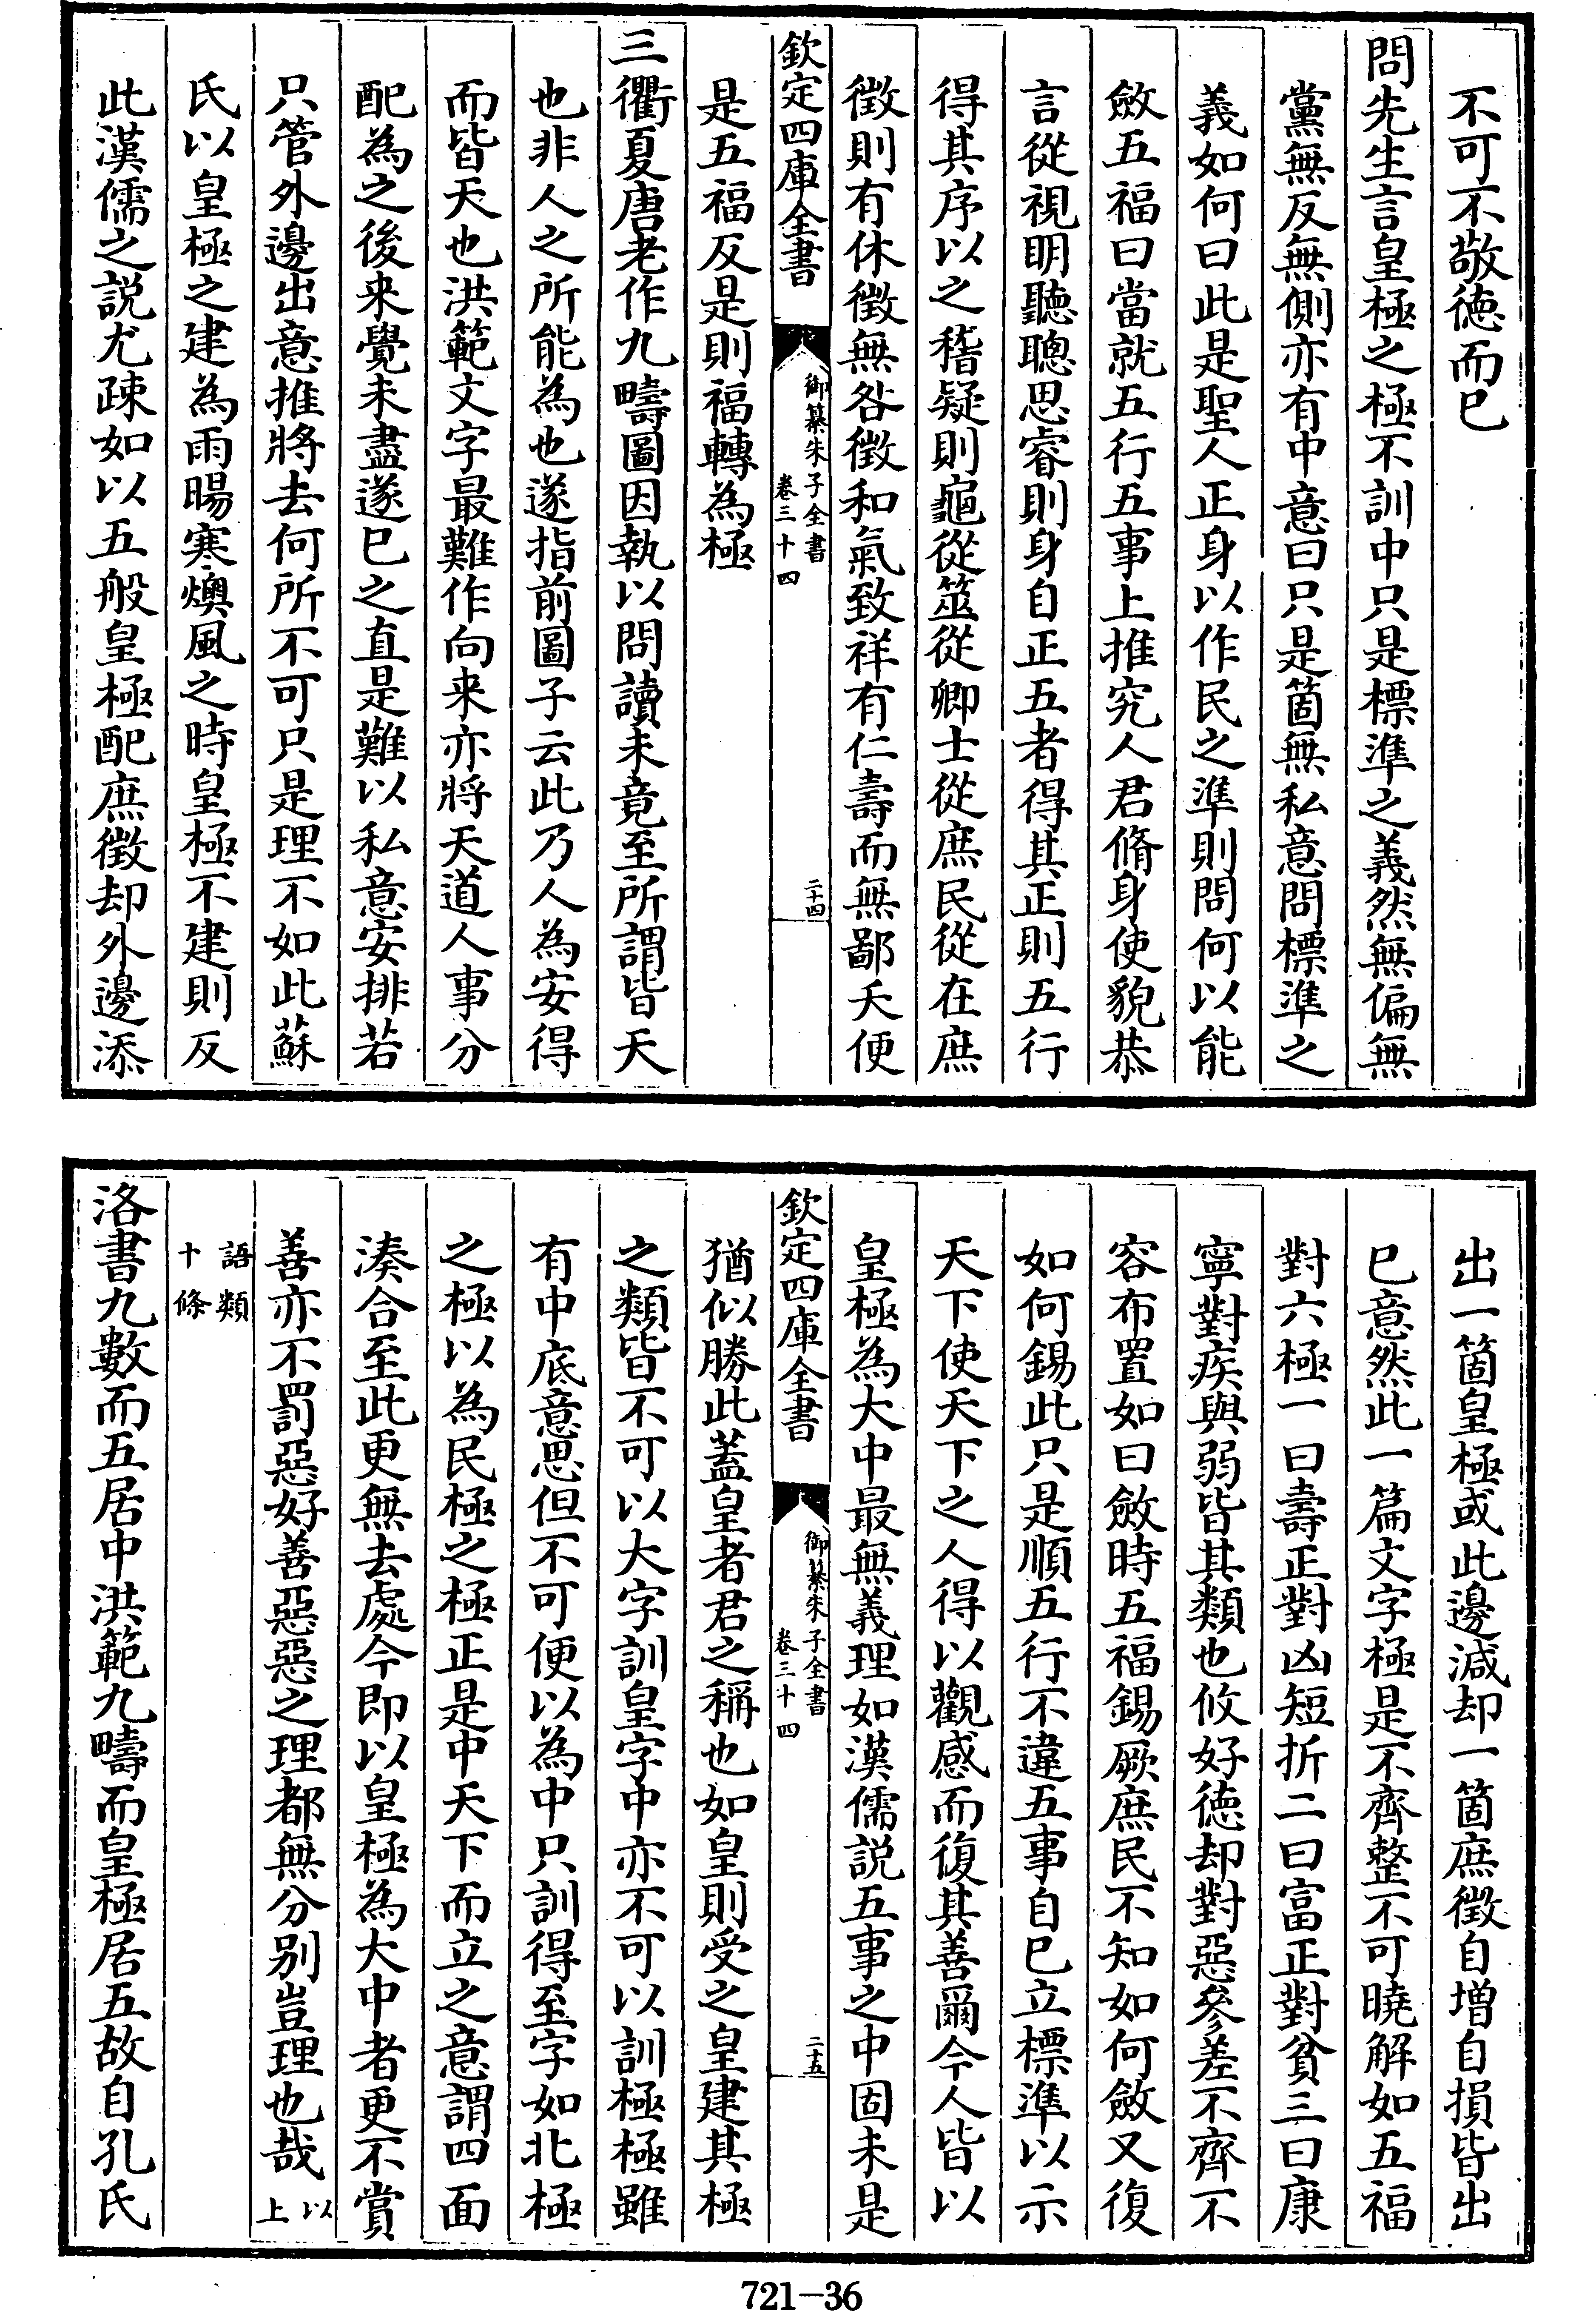 不可不敬徳而已
問先生言皇極之極不訓中只是標準之義然無偏無
黨無反無側亦有中意曰只是箇無私意問標準之
義如何曰此是聖人正身以作民之準則問何以能
斂五福曰當就五行五事上推究人君脩身使貌恭
言從視明聽聰思睿則身自正五者得其正則五行
得其序以之稽疑則龜從筮從卿士從庶民從在庶
徵則有休徵無咎徵和氣致祥有仁壽而無鄙夭便
欽定四庫全書
御纂朱子全書
卷三十四
二十四
是五福反是則福轉為極
三衢夏唐老作九疇圖因執以問讀未竟至所謂皆天
也非人之所能為也遂指前圖子云此乃人為安得
而皆天也洪範文字最難作向来亦將天道人事分
配為之後来覺未盡遂已之直是難以私意安排若
只管外邊出意推將去何所不可只是理不如此蘇
氏以皇極之建為雨暘寒燠風之時皇極不建則反
此漢儒之説尤疎如以五般皇極配庶徵却外邊添
出一箇皇極或此邊減却一箇庶徵自增自損皆出
已意然此一篇文字極是不齊整不可曉解如五福
對六極一曰壽正對凶短折二曰富正對貧三曰康
寧對疾與弱皆其類也攸好徳却對惡參差不齊不
容布置如曰斂時五福錫厥庶民不知如何斂又復
如何錫此只是順五行不違五事自已立標準以示
天下使天下之人得以觀感而復其善爾今人皆以
皇極為大中最無義理如漢儒説五事之中固未是
欽定四庫全書
御纂朱子全書
卷三十四
二十五
猶似勝此蓋皇者君之稱也如皇則受之皇建其極
之類皆不可以大字訓皇字中亦不可以訓極極雖
有中底意思但不可便以為中只訓得至字如北極
之極以為民極之極正是中天下而立之意謂四面
湊合至此更無去處今即以皇極為大中者更不賞
善亦不罰惡好善惡惡之理都無分别豈理也哉以上
語類
十條
洛書九數而五居中洪範九疇而皇極居五故自孔氏
721-36